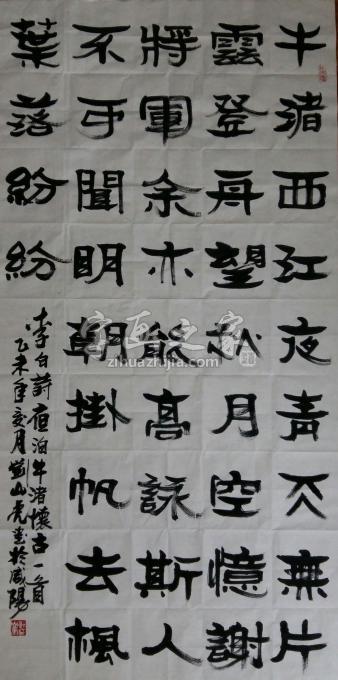 牛渚西江夜青天無片
雲登舟望秋月空憶謝
將軍余亦能高詠斯人
不可聞明朝掛帆去楓
葉落紛紛
李白詩夜泊牛渚懷古一首
乙未年月山虎書於咸陽
字画之家
zihuazhijia.com